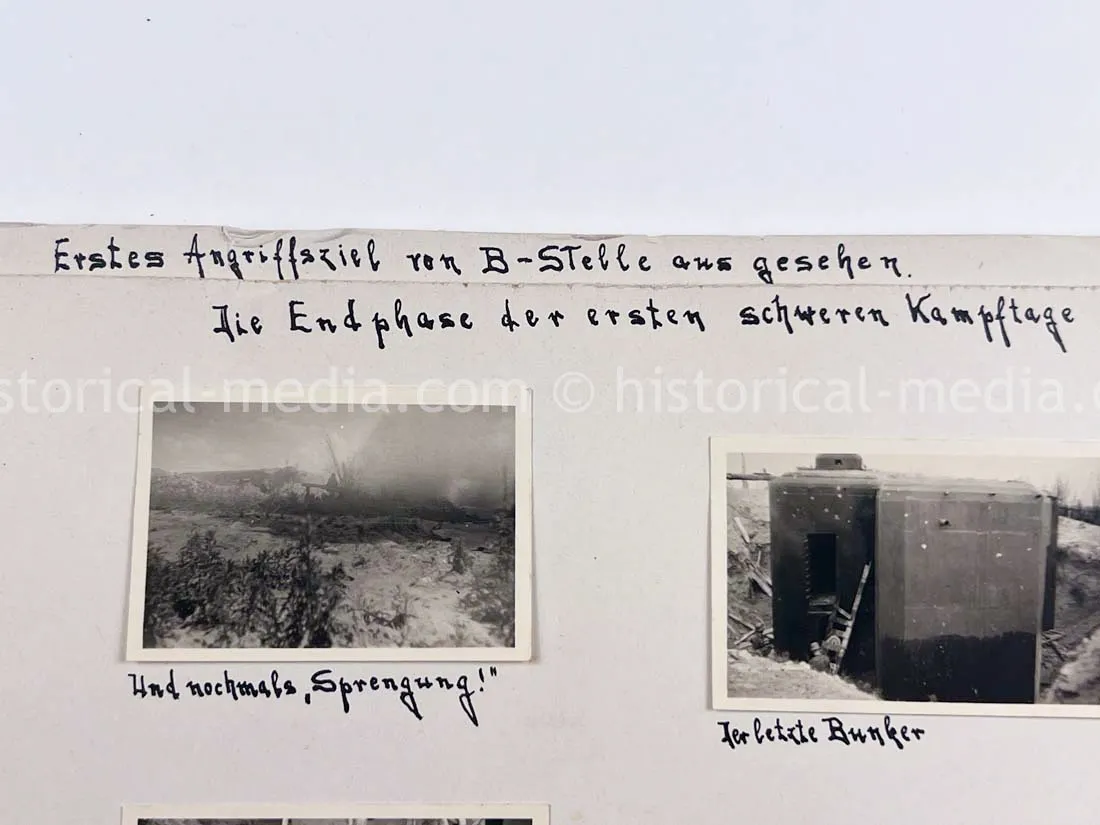 Erstes Angriffsziel von B-STelle aus gesehen.
Die Endphase der ersten schweren Kampftage
storical-media.com © historical-media.c
Und nochmals „Sprengung!"
Der letzte Bunker